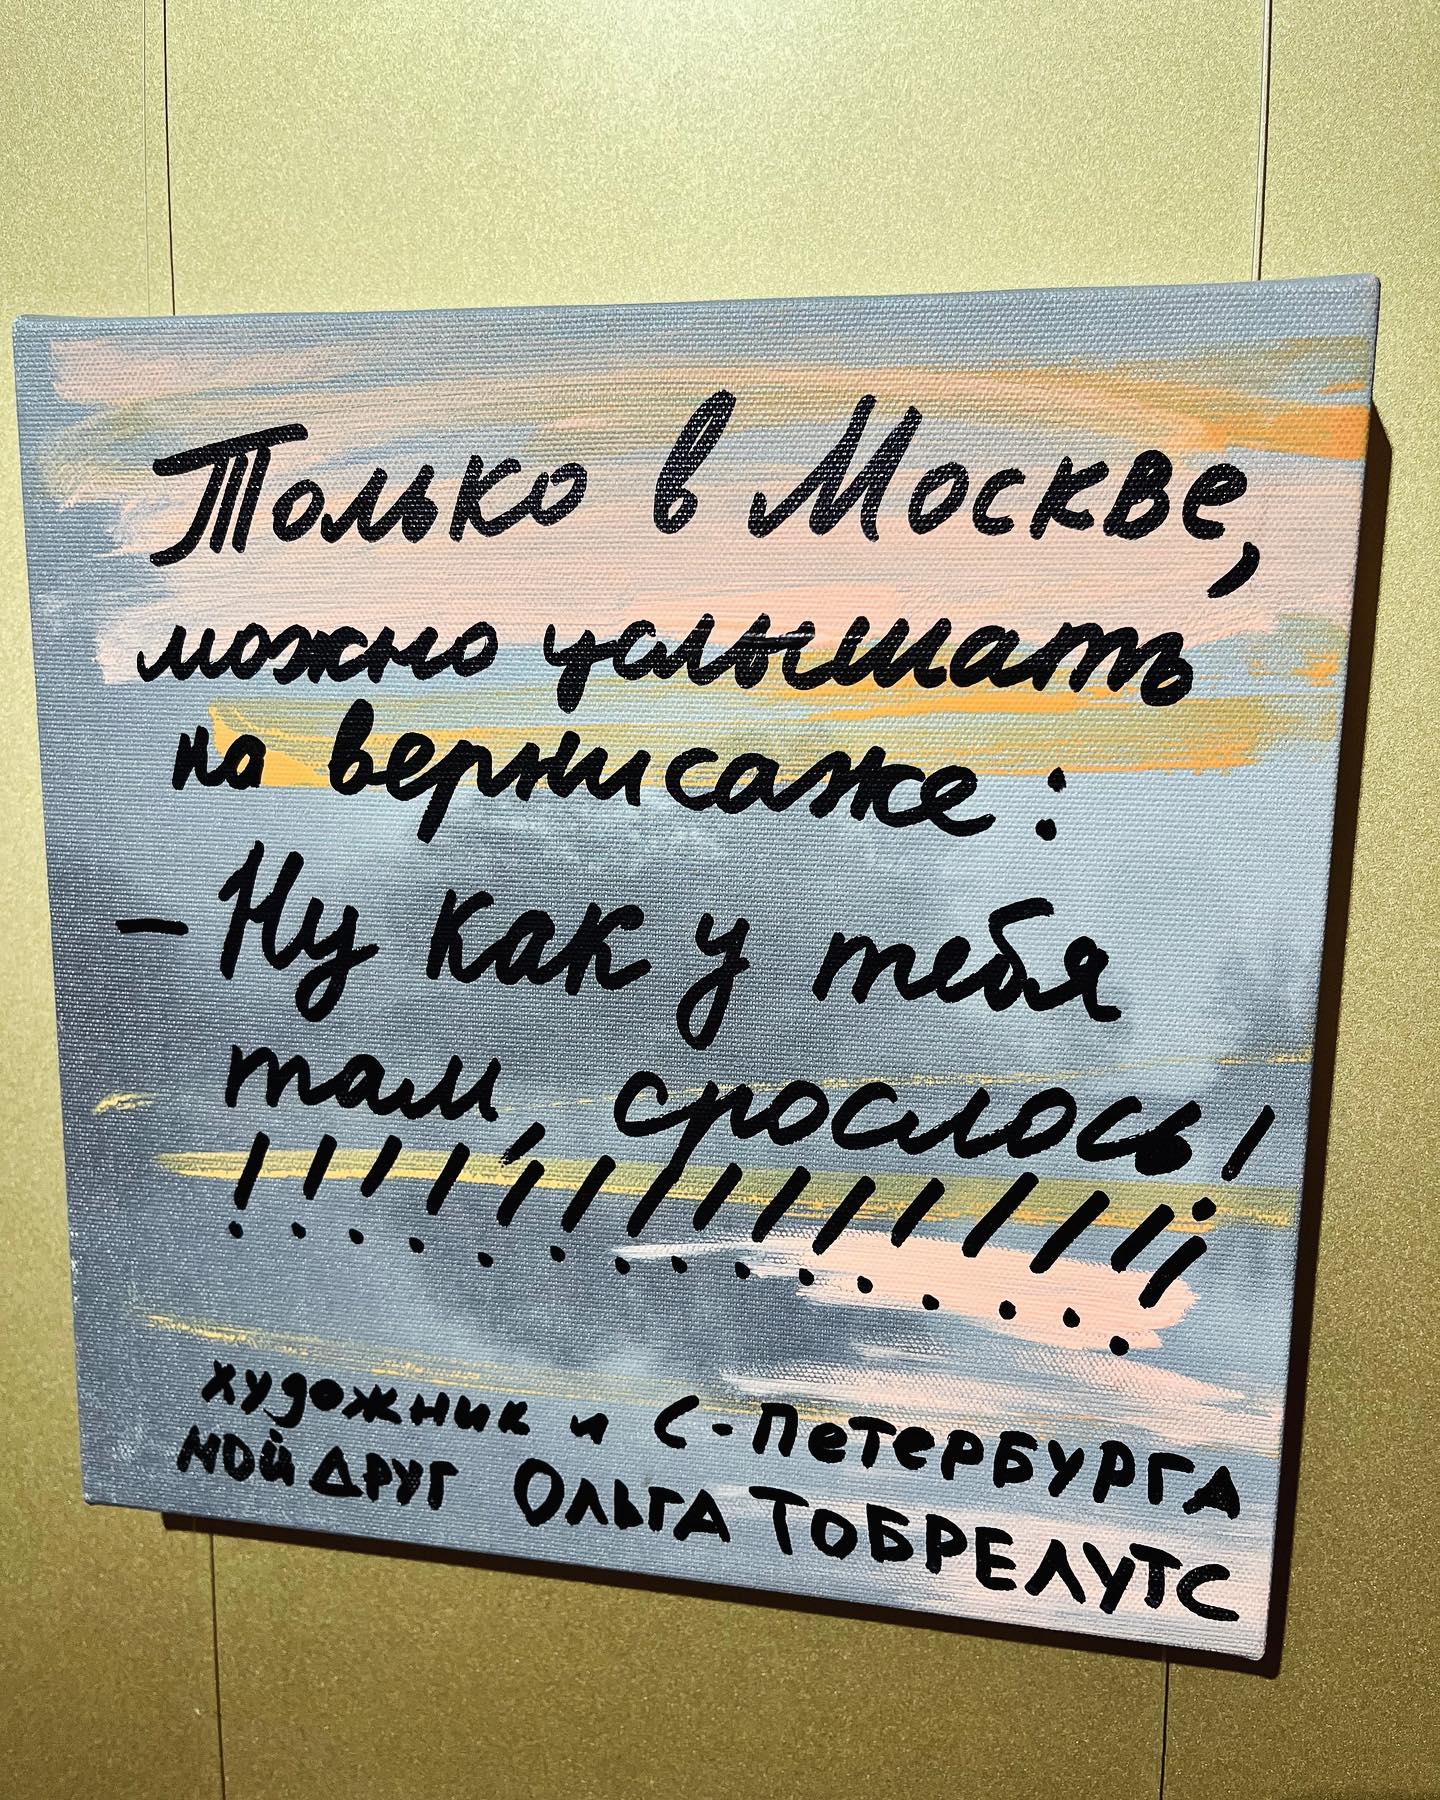 Только в Москве,
можно услышать
на вернисаже:
— Ну как у тебя
там, срослось!
!!!!!!!!!!!!!!!
художник и С-Петербурга
мой друг Ольга Тобрелутс